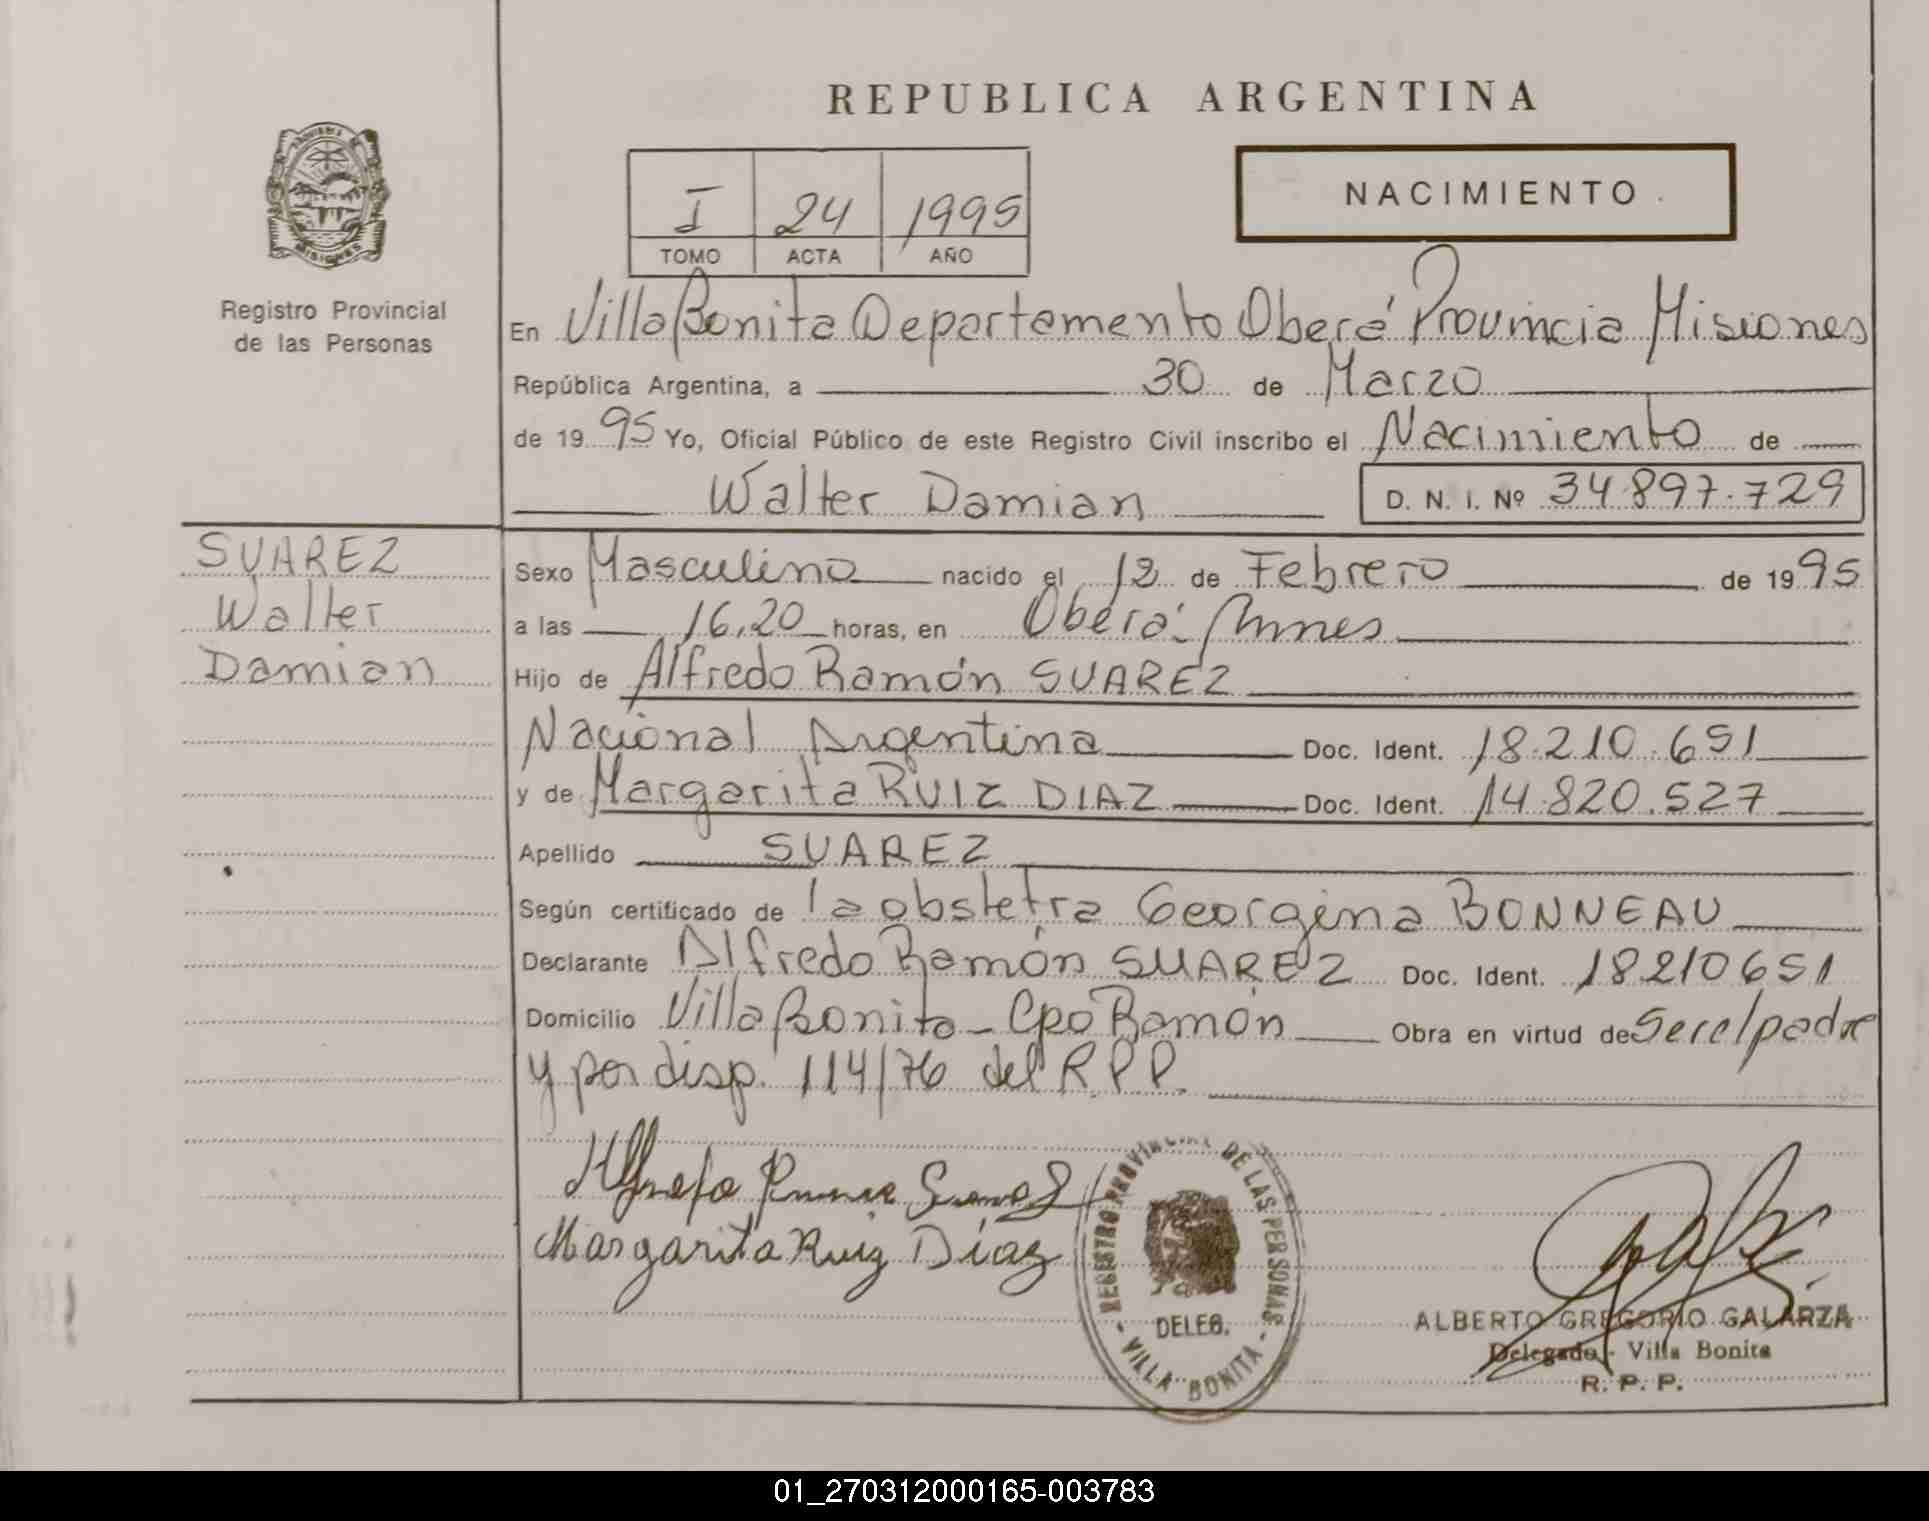 REPUBLICA ARGENTINA
PROVINCIA DE MISIONES
Registro Provincial
de las Personas
I 24 1995
TOMO ACTA AÑO
NACIMIENTO
En Villa Bonita Departamento Oberá Provincia Misiones
República Argentina, a 30 de Marzo
de 1995 Yo, Oficial Público de este Registro Civil inscribo el Nacimiento de
Walter Damian D. N. I. Nº 34.897.729
SUAREZ
Walter
Damian
Sexo Masculino nacido el 12 de Febrero de 1995
a las 16,20 horas, en Oberá. Mnes
Hijo de Alfredo Ramón SUAREZ
Nacional Argentina Doc. Ident. 18.210.651
y de Margarita RUIZ DIAZ Doc. Ident. 14.820.527
Apellido SUAREZ
Según certificado de la obstetra Georgina BONNEAU
Declarante Alfredo Ramón SUAREZ Doc. Ident. 18210651
Domicilio Villa Bonita - Cpo Ramón Obra en virtud de Ser el padre
y por disp. 114/76 del R.P.P.
Margarita Ruiz Díaz
REGISTRO PROVINCIAL DE LAS PERSONAS
DELEG.
- VILLA BONITA -
ALBERTO GREGORIO GALARZA
Delegado - Villa Bonita
R. P. P.
01_270312000165-003783